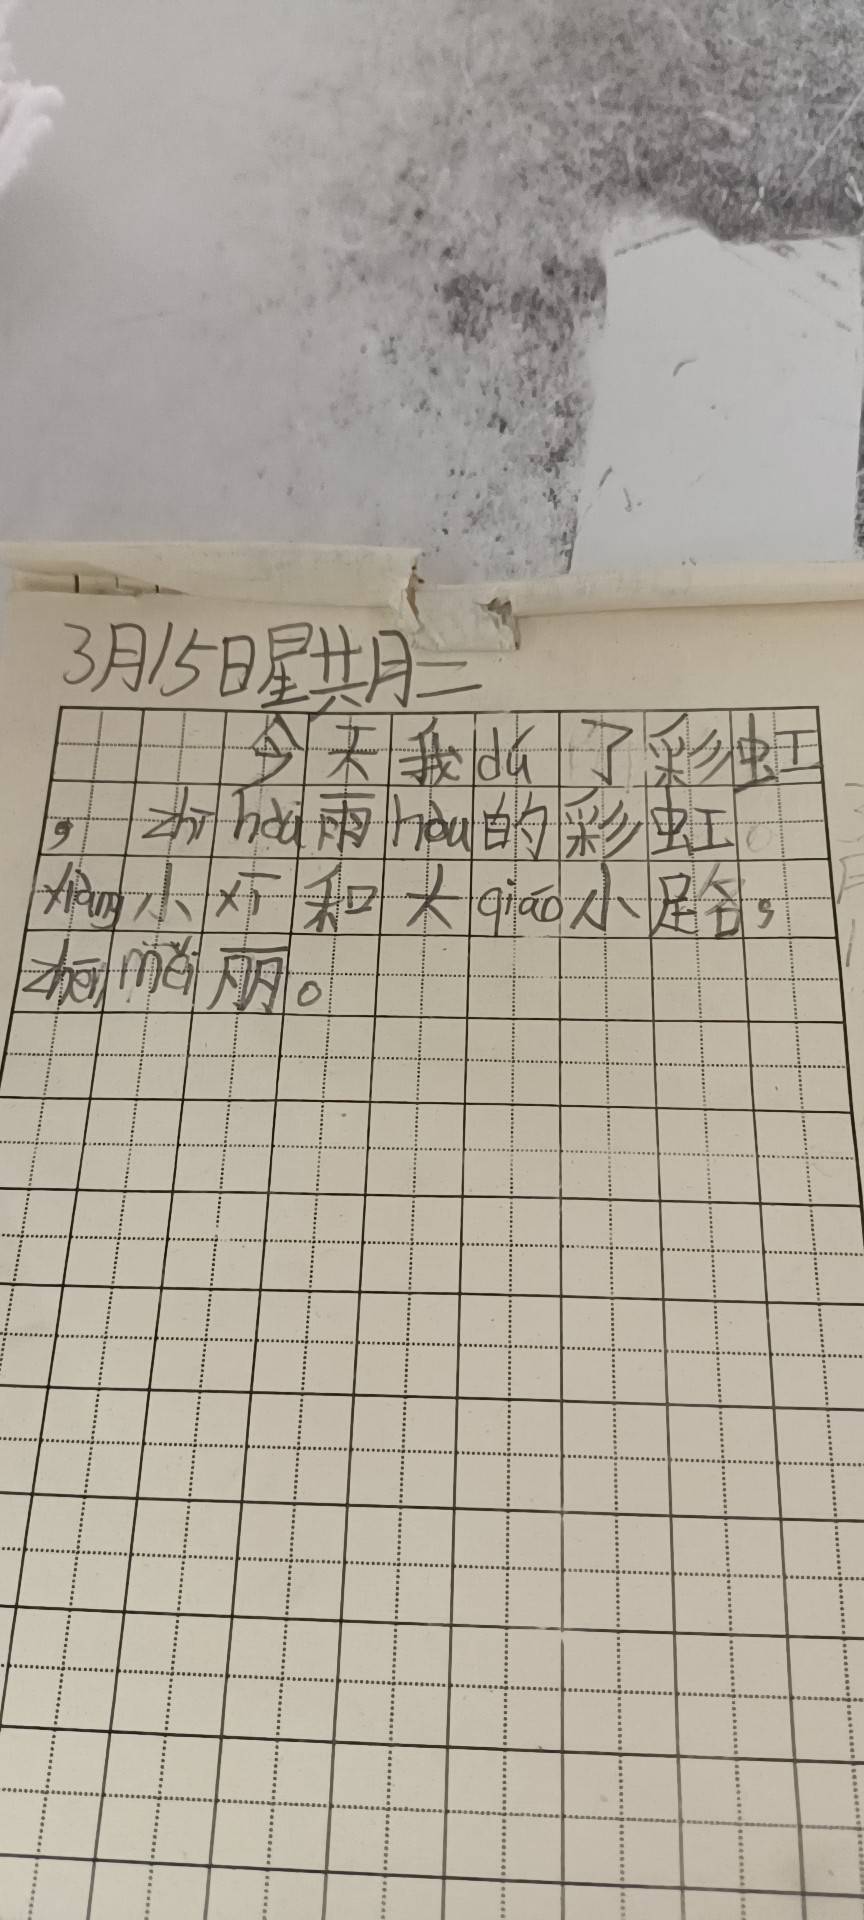 3月15日星期二
今天我dú了彩虹
，zhī hòu雨hòu的彩虹
xiàng小xī和大qiáo小路，
zhēn měi丽。